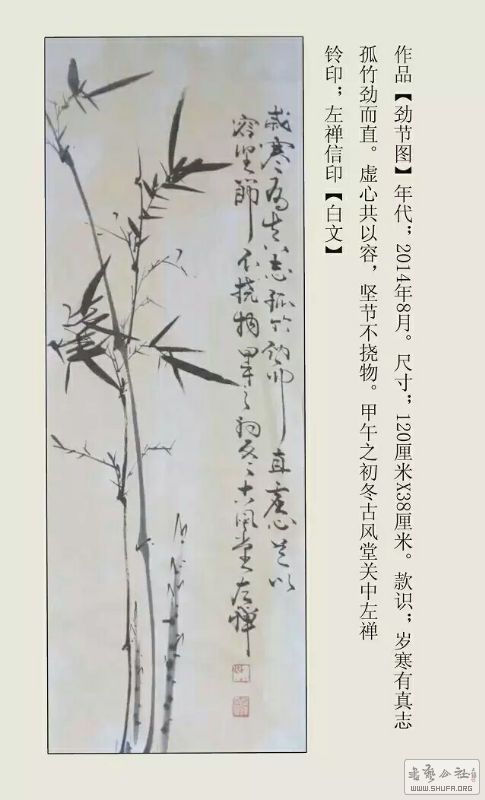 作品【劲节图】年代；2014年8月。尺寸；120厘米X38厘米。款识；岁寒有真志
孤竹劲而直。虚心共以容，坚节不挠物。甲午之初冬古风堂关中左禅
铃印；左禅信印【白文】
歲寒有真志孤竹勁而直虛心共以
容堅節不撓物甲午之初冬古風堂左禅
WWW.SHUFA.ORG